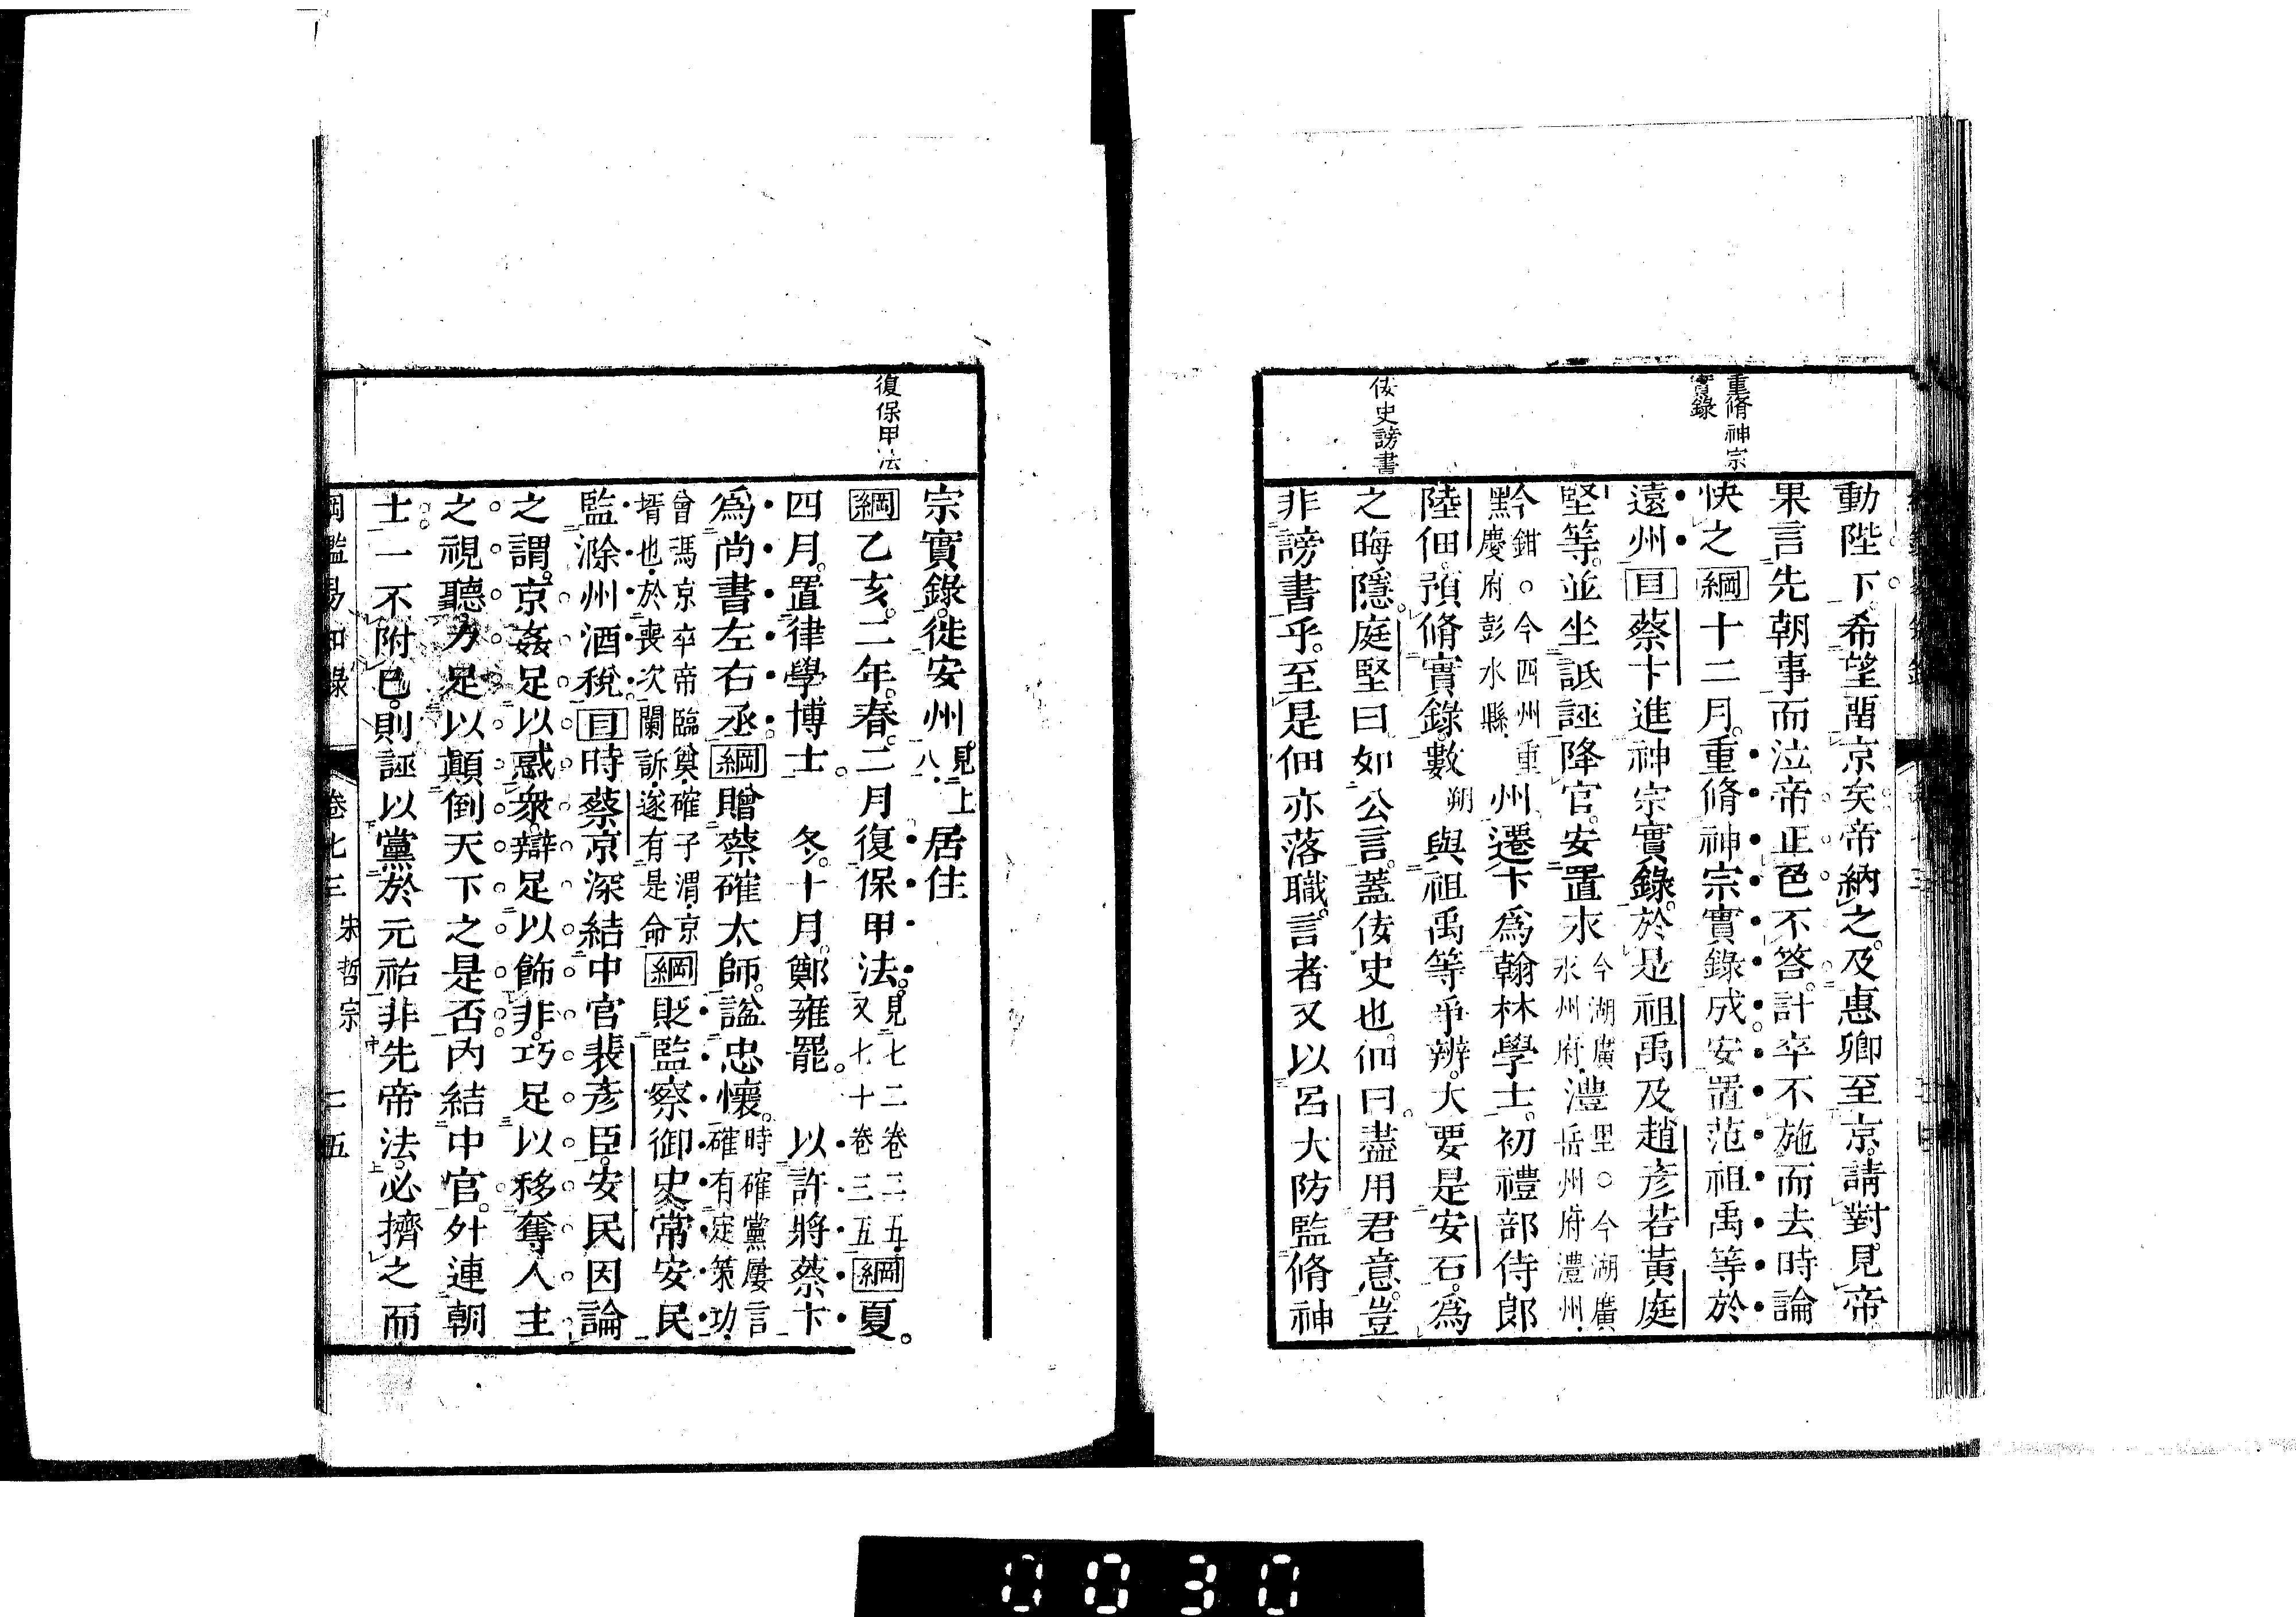 重脩神宗
實錄
佞史謗書
動陛下。希望畱京矣。帝納之。及惠卿至京。請對。見帝
果言先朝事而泣。帝正色不答。計卒不施而去。時論
快之綱十二月。重脩神宗實錄成。安置范祖禹等於
遠州目蔡卞進神宗實錄。於是祖禹及趙彥若黃庭
堅等。並坐詆誣降官。安置永今湖廣永州府。澧里○今湖廣岳州府澧州。
黔鉗○今四州重慶府彭水縣。州遷卞爲翰林學士。初禮部侍郎
陸佃。預脩實錄。數朔與祖禹等爭辨。大要是安石。爲
之晦隱。庭堅曰如公言。蓋佞史也。佃曰。盡用君意。豈
非謗書乎。至是佃亦落職。言者又以呂大防監脩神
復保甲法
宗實錄。徙安州見上八。居住
綱乙亥。二年。春。二月復保甲法。見七二卷二五又七十卷三五綱夏。
四月。置律學博士。　冬。十月。鄭雍罷。　以許將蔡卞
爲尚書左右丞綱贈蔡確太師。諡忠懷。時確黨屢言確有定策功。
曾馮京卒帝臨奠。確子渭。京壻也。於喪次闌訴。遂有是命綱貶監察御史常安民
監滁州酒稅。目時蔡京深結中官裴彥臣。安民因論
之謂。京姦足以惑衆。辯足以飾非。巧足以移奪人主
之視聽。力足以顛倒天下之是否。內結中官。外連朝
士。一不附已。則誣以黨於元祐。非先帝法。必擠之而
綱鑑易知錄　卷七三　宋哲宗　二五
0030